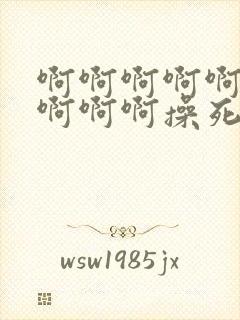 啊啊啊啊啊
啊啊啊操死
wsw1985jx